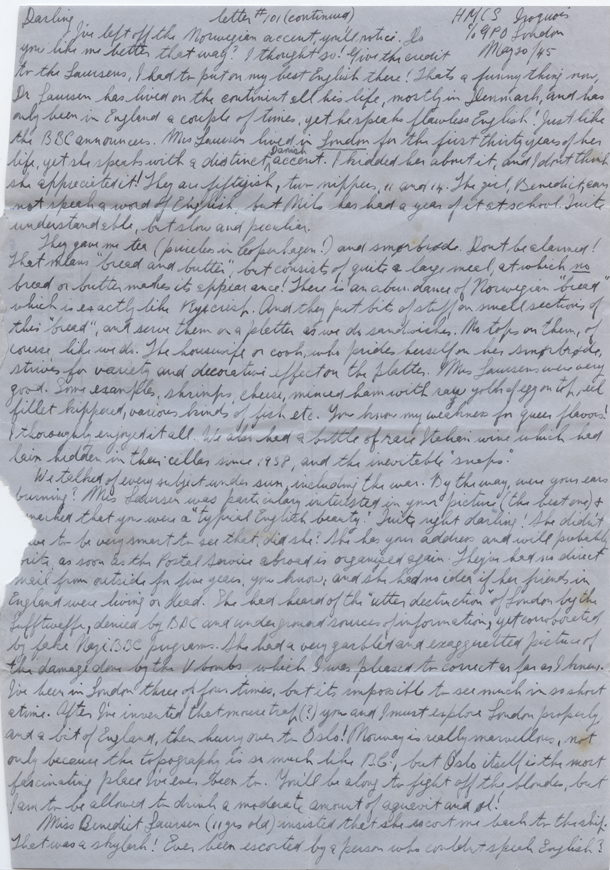 Darling letter #101 (continued) HMCS Iroquois
I've left off the Norwegian accent, you'll notice. Do % GPO London
you like me better that way? I thought so! Give the credit May 30/45
to the Laursens, I had to put on my best English there! That's a funny thing now,
Dr Laursen has lived on the continent all his life, mostly in Denmark, and has
only been in England a couple of times, yet he speaks flawless English! Just like
the BBC announcers. Mrs Laursen lived in London for the first thirty years of her
life, yet she speaks with a distinct Danish accent. I kidded her about it, and I don't think
she appreciated it! They are fiftyish, two nippers, 11 and 14. The girl, Benedict, can
not speak a word of English, but Nils has had a year of it at school. Quite
understandable, but slow and peculiar.
They gave me tea (pinches in Copenhagen!) and smorbrode. Dont be alarmed!
That means "bread and butter", but consists of quite a large meal, at which no
bread or butter makes its appearance! There is an abundance of Norwegian "bread"
which is exactly like Ryecrisp. And they put bits of stuff on small sections of
this "bread", and serve them on a platter as we do sandwiches. No tops on them, of
course, like we do. The housewife or cook, who prides herself on her smorbrode,
strives for variety and decorative effect on the platter. Mrs Laursens were very
good. Some examples, shrimps, cheese, minced ham with raw yolk of egg on top, eel
fillet kippered, various kinds of fish etc. You know my weakness for queer flavors!
I thoroughly enjoyed it all. We also had a bottle of rare Italian wine which had
lain hidden in their cellar since 1938, and the inevitable "snaps".
We talked of every subject under sun, including the war. By the way, were your ears
burning? Mrs Laursen was particulary interested in your picture (the best one) &
remarked that you were a "typical English beauty". Quite right darling! She didn't
have to be very smart to see that, did she? She has your address and will probably
write, as soon as the Postal Service abroad is organized again. They've had no direct
mail from outside for five years, you know, and she had no idea if her friends in
England were living or dead. She had heard of the "utter destruction" of London by the
Luftwaffe, denied by BBC and underground sources of information, yet corroborated
by fake Nazi BBC programs. She had a very garbled and exaggerated picture of
the damage done by the V bombs which I was pleased to correct as far as I knew.
I've been in London three or four times, but its impossible to see much in so short
a time. After I've invented that mouse trap (?) you and I must explore London properly
and a bit of England, then hurry over to Oslo! Norway is really marvellous, not
only because the topography is so much like BC!, but Oslo itself is the most
fascinating place I've ever been to. You'll be along to fight off the blondes, but
I am to be allowed to drink a moderate amount of aquavit and øl!
Miss Benedict Laursen (11 yrs old) insisted that she escort me back to the ship.
That was a skylark! Ever been escorted by a person who couldn't speak English?